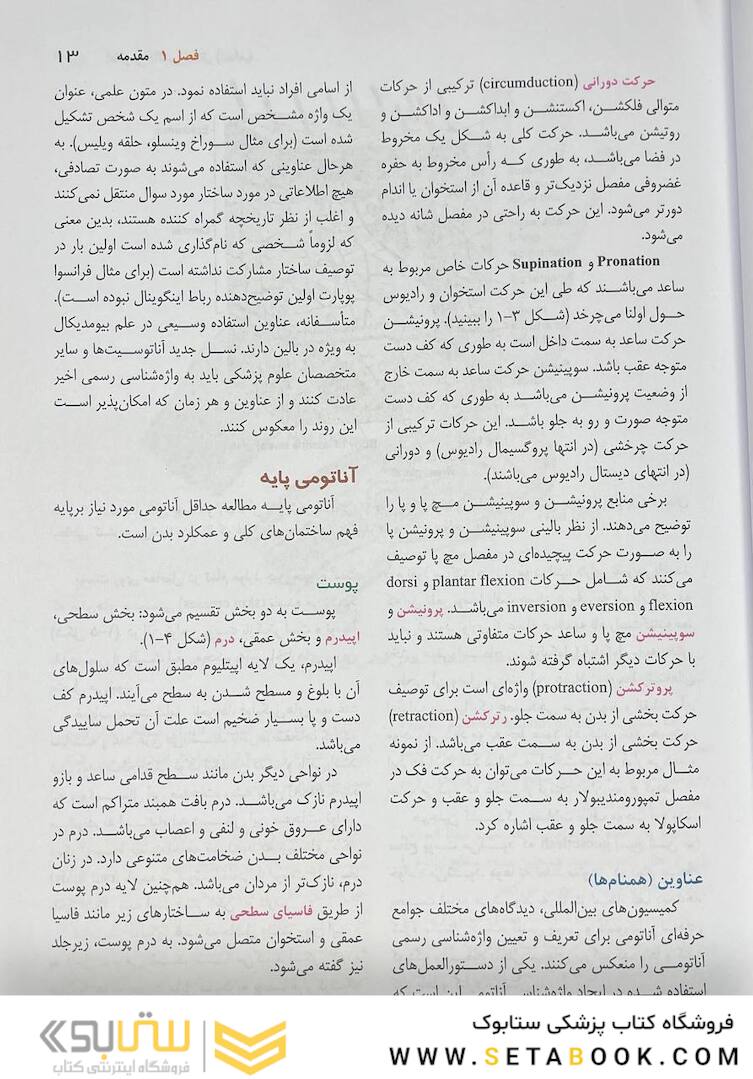 فصل ۱ مقدمه ۱۳
حرکت دورانی (circumduction) ترکیبی از حرکات
متوالی فلکشن، اکستنشن و ابداکشن و اداکشن و
روتیشن می‌باشد. حرکت کلی به شکل یک مخروط
در فضا می‌باشد، به طوری که رأس مخروط به حفره
غضروفی مفصل نزدیک‌تر و قاعده آن از استخوان یا اندام
دورتر می‌شود. این حرکت به راحتی در مفصل شانه دیده
می‌شود.
Pronation و Supination حرکات خاص مربوط به
ساعد می‌باشند که طی این حرکت استخوان و رادیوس
حول اولنا می‌چرخد (شکل ۳-۱ را ببینید). پرونیشن
حرکت ساعد به سمت داخل است به طوری که کف دست
متوجه عقب باشد. سوپینیشن حرکت ساعد به سمت خارج
از وضعیت پرونیشن می‌باشد به طوری که کف دست
متوجه صورت و رو به جلو باشد. این حرکات ترکیبی از
حرکت چرخشی (در انتها پروگسیمال رادیوس) و دورانی
(در انتهای دیستال رادیوس می‌باشند).
برخی منابع پرونیشن و سوپینیشن مچ پا و پا را
توضیح می‌دهند. از نظر بالینی سوپینیشن و پرونیشن پا
را به صورت حرکت پیچیده‌ای در مفصل مچ پا توصیف
می‌کنند که شامل حرکات plantar flexion و dorsi
flexion و eversion و inversion می‌باشد. پرونیشن و
سوپینیشن مچ پا و ساعد حرکات متفاوتی هستند و نباید
با حرکات دیگر اشتباه گرفته شوند.
پروترکشن (protraction) واژه‌ای است برای توصیف
حرکت بخشی از بدن به سمت جلو. رترکشن (retraction)
حرکت بخشی از بدن به سمت عقب می‌باشد. از نمونه
مثال مربوط به این حرکات می‌توان به حرکت فک در
مفصل تمپورومندیبولار به سمت جلو و عقب و حرکت
اسکاپولا به سمت جلو و عقب اشاره کرد.
عناوین (همنام‌ها)
کمیسیون‌های بین‌المللی، دیدگاه‌های مختلف جوامع
حرفه‌ای آناتومی برای تعریف و تعیین واژه‌شناسی رسمی
آناتومی را منعکس می‌کنند. یکی از دستورالعمل‌های
استفاده شده در ایجاد واژه‌شناسی آناتومی این است که
از اسامی افراد نباید استفاده نمود. در متون علمی، عنوان
یک واژه مشخص است که از اسم یک شخص تشکیل
شده است (برای مثال سوراخ وینسلو، حلقه ویلیس). به
هرحال عناوینی که استفاده می‌شوند به صورت تصادفی،
هیچ اطلاعاتی در مورد ساختار مورد سوال منتقل نمی‌کنند
و اغلب از نظر تاریخچه گمراه کننده هستند، بدین معنی
که لزوماً شخصی که نام‌گذاری شده است اولین بار در
توصیف ساختار مشارکت نداشته است (برای مثال فرانسوا
پوپارت اولین توضیح‌دهنده رباط اینگوینال نبوده است).
متأسفانه، عناوین استفاده وسیعی در علم بیومدیکال
به ویژه در بالین دارند. نسل جدید آناتوسیت‌ها و سایر
متخصصان علوم پزشکی باید به واژه‌شناسی رسمی اخیر
عادت کنند و از عناوین و هر زمان که امکان‌پذیر است
این روند را معکوس کنند.
آناتومی پایه
آناتومی پایه مطالعه حداقل آناتومی مورد نیاز برپایه
فهم ساختمان‌های کلی و عمکلرد بدن است.
پوست
پوست به دو بخش تقسیم می‌شود: بخش سطحی،
اپیدرم و بخش عمقی، درم (شکل ۴-۱).
اپیدرم، یک لایه اپیتلیوم مطبق است که سلول‌های
آن با بلوغ و مسطح شدن به سطح می‌آیند. اپیدرم کف
دست و پا بسیار ضخیم است علت آن تحمل ساییدگی
می‌باشد.
در نواحی دیگر بدن مانند سطح قدامی ساعد و بازو
اپیدرم نازک می‌باشد. درم بافت همبند متراکم است که
دارای عروق خونی و لنفی و اعصاب می‌باشد. درم در
نواحی مختلف بدن ضخامت‌های متنوعی دارد. در زنان
درم، نازک‌تر از مردان می‌باشد. هم‌چنین لایه درم پوست
از طریق فاسیای سطحی به ساختارهای زیر مانند فاسیا
عمقی و استخوان متصل می‌شود. به درم پوست، زیرجلد
نیز گفته می‌شود.
فروشگاه کتاب پزشکی ستابوک
WWW.SETABOOK.COM
ستابوک
فروشگاه اینترنتی کتاب